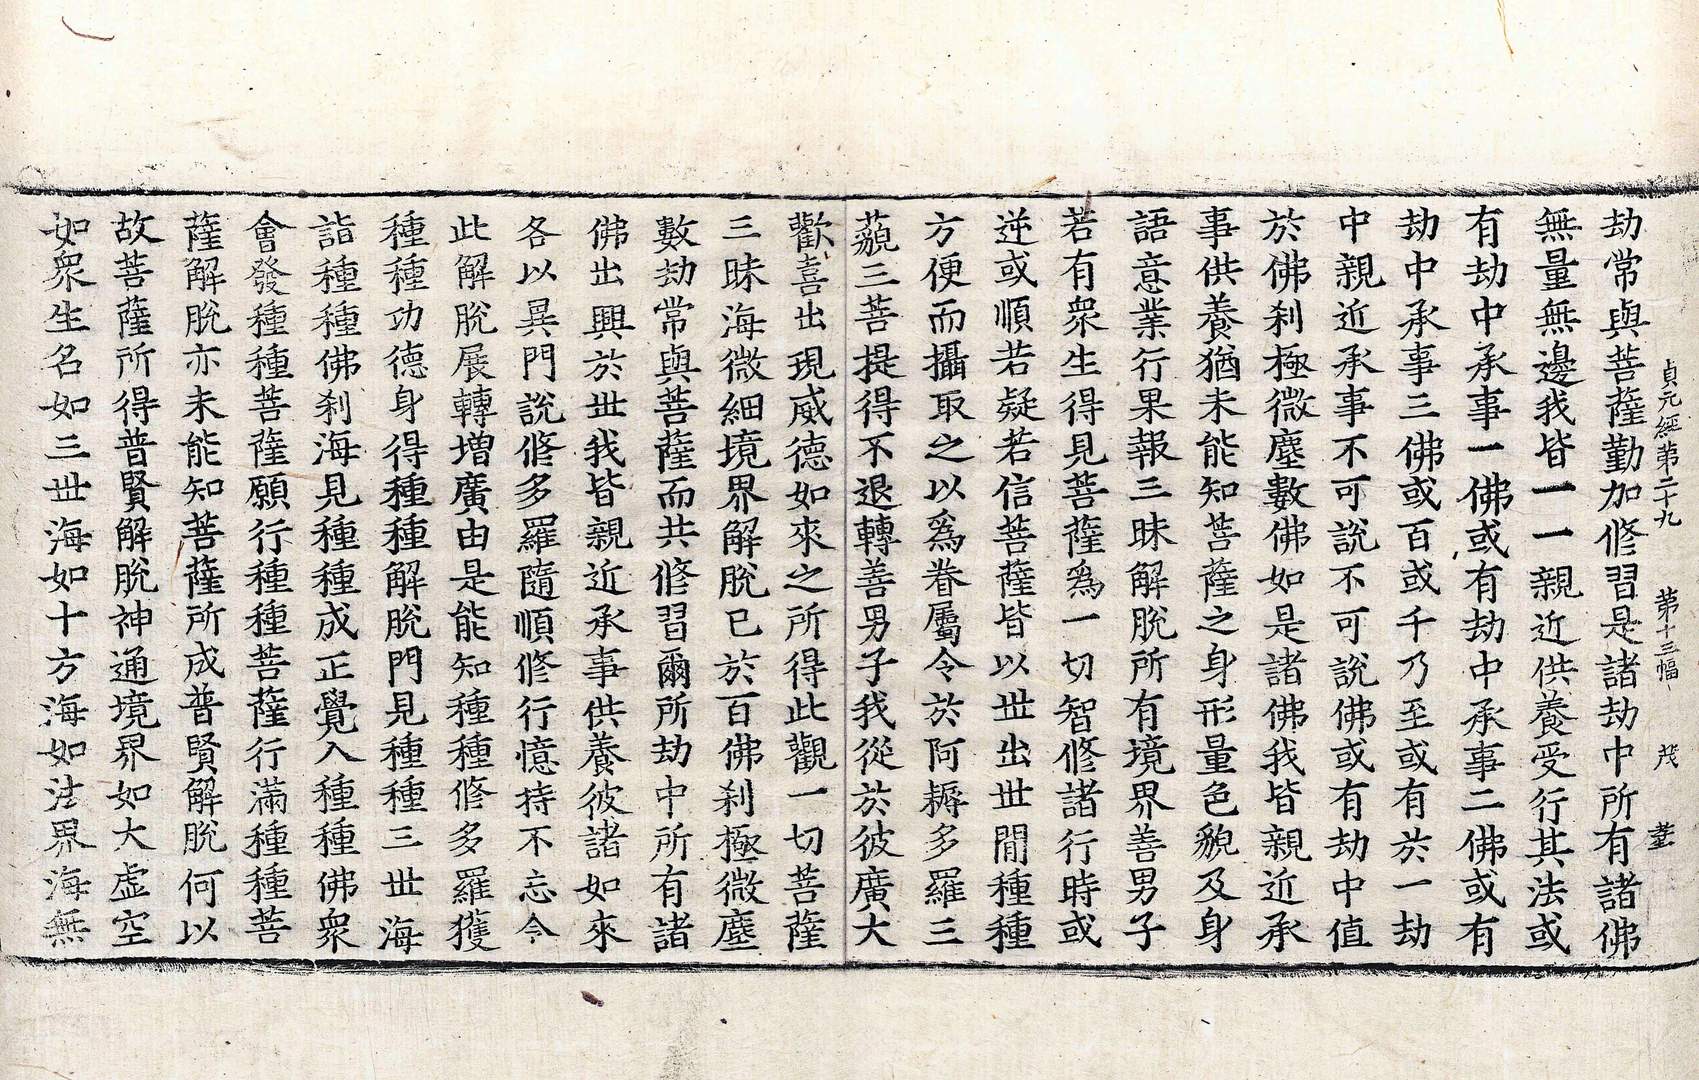 貞元經第二十九 第十三幅 茂
劫常與菩薩勤加修習是諸劫中所有諸佛
無量無邊我皆一一親近供養受行其法或
有劫中承事一佛或有劫中承事二佛或有
劫中承事三佛或百或千乃至或有於一劫
中親近承事不可說不可說佛或有劫中值
於佛刹極微塵數佛如是諸佛我皆親近承
事供養猶未能知菩薩之身形量色貌及身
語意業行果報三昧解脫所有境界善男子
若有衆生得見菩薩爲一切智修諸行時或
逆或順若疑若信菩薩皆以世出世間種種
方便而攝取之以爲眷屬令於阿耨多羅三
藐三菩提得不退轉善男子我從於彼廣大
歡喜出現威德如來之所得此觀一切菩薩
三昧海微細境界解脫已於百佛刹極微塵
數劫常與菩薩而共修習爾所劫中所有諸
佛出興於世我皆親近承事供養彼諸如來
各以異門說修多羅隨順修行憶持不忘令
此解脫展轉增廣由是能知種種修多羅獲
種種功德身得種種解脫門見種種三世海
詣種種佛刹海見種種成正覺入種種佛衆
會發種種菩薩願行種種菩薩行滿種種菩
薩解脫亦未能知菩薩所成普賢解脫何以
故菩薩所得普賢解脫神通境界如大虛空
如衆生名如三世海如十方海如法界海無